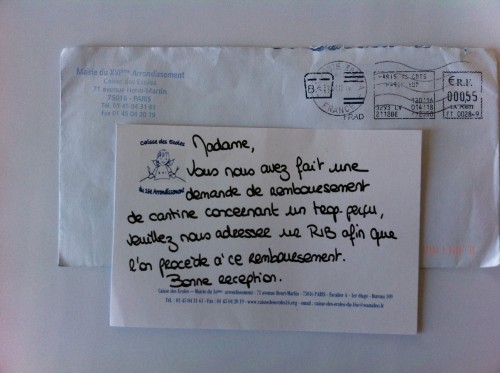 Mairie du XVIème Arrondissement
Caisse des Ecoles
71 Avenue Henri-Martin
75016 - PARIS
R.F.
000,55
LA POSTE
Caisse des Ecoles
du 16e Arrondissement
Madame,
Vous nous avez fait une
demande de remboursement
de cantine concernant un trop perçu,
veuillez nous adresser un RIB afin que
l'on procède à ce remboursement.
Bonne reception.
Caisse des Ecoles - Mairie du 16ème arrondissement - 71 avenue Henri-Martin - 75016 PARIS - Escalier A - 1er étage - Bureau